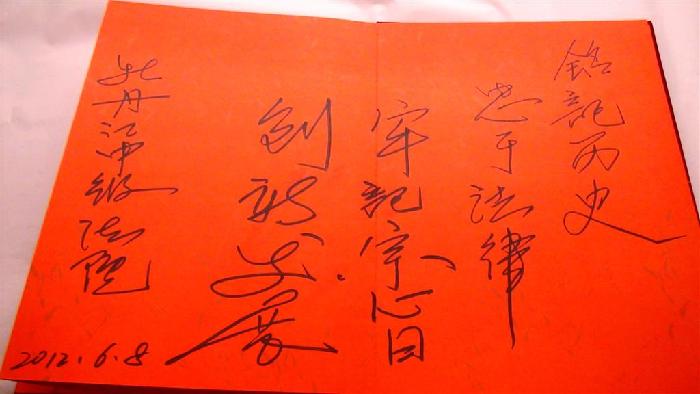 铭记历史
忠于法律
牢记宗旨
创新发展
牡丹江中级法院
2012.6.8